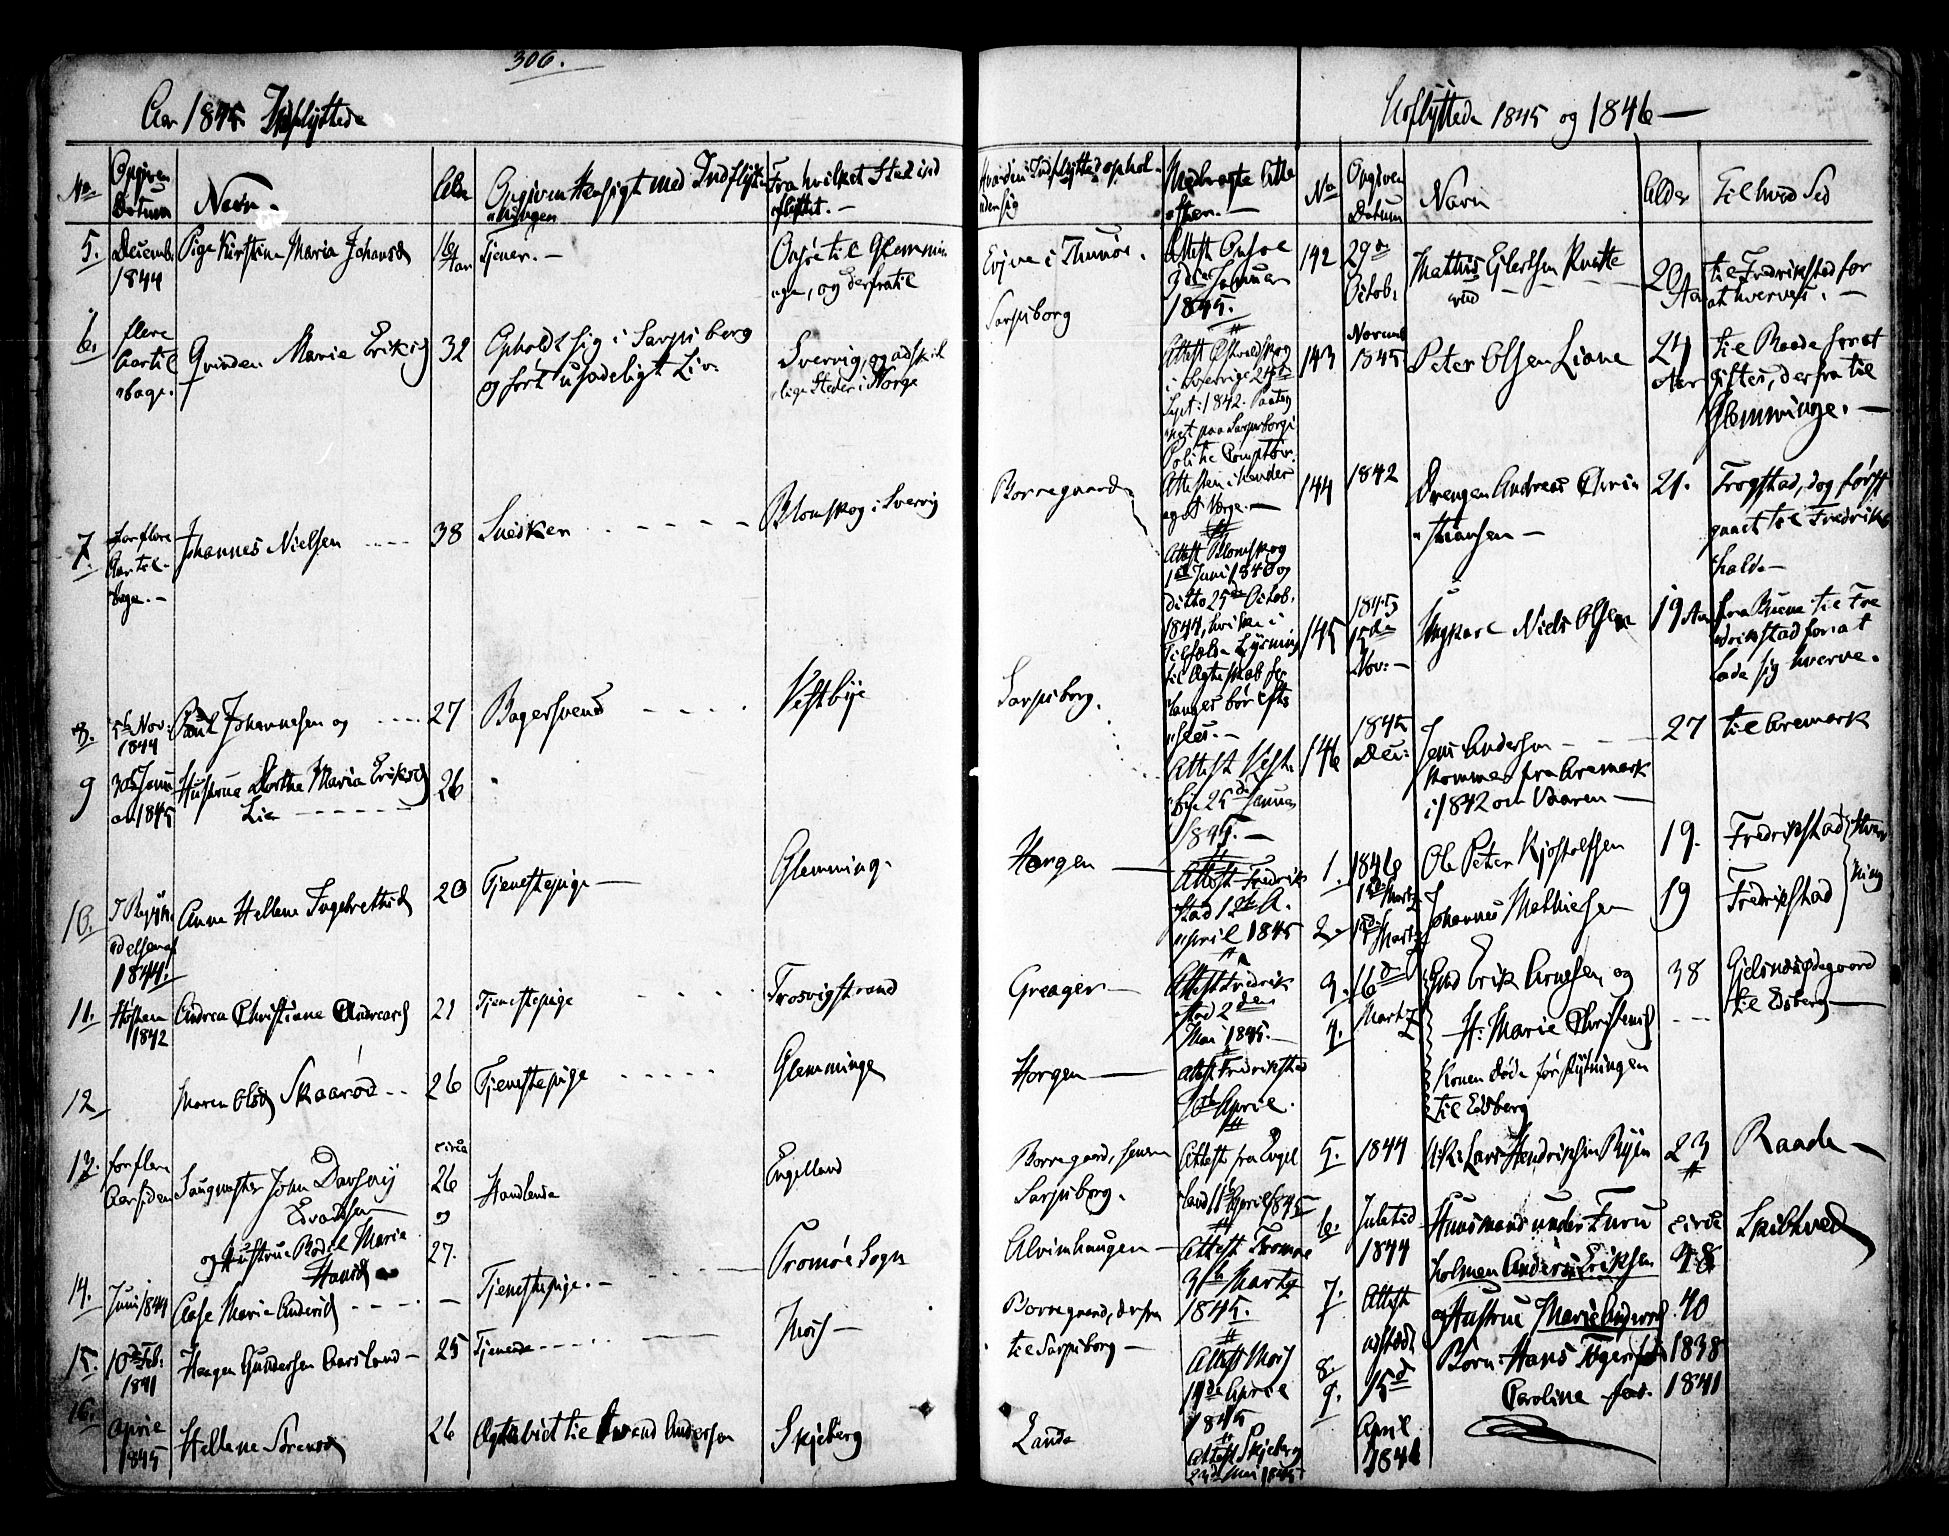 306.
Aar 1845 Indflyttede
No. Opgiven Datum Navn. Alder Opgiven Hensigt med Indflytningen Fra hvilket Sted indflyttet. —
5. Decemb. 1844 Pige Kirstine Maria Johansd 16 Aar Tjener. — Onsøe til Glemminge, og derfra til
6. flere Aar tilbage. Qvinden Marie Eriksd 32 Opholdt sig i Sarpsborg og ført usædeligt Liv. Sverrig, og adskillige Steder i Norge
7. for flere Aar tilbage. — Johannes Nielsen 38 Snedker Blomskog i Sverrig
8. 5te Nov: 1844 Paul Johannesen og 27 Bagersvend Vestbye
9 30te Januar 1845 Hustrue Dorthe Maria Eriksd Lie 26
10. 1844. Anne Hellene Ingebretsd 20 Tjenestepige — Glemming.
11. Høsten 1842 Andrea Christiane Andreasd 21 Tjenestepige Trosvigstrand
12 Maren Olsd Skaarød 26 Tjenestepige Glemminge
13. for flere Aar siden John
og Hustrue Bodil Marie Hansd circa 26 og 27. Handlende Engelland
14. Juni 1844 Aase Marie Andersd — Tjenestepige. — Tromøe Sogn
15. 10de Feb. 1841 Haagen Gundersen Aarsland — 25 Tjenende Moss —
16. April 1845 Hellene Sørensd 26 Ægteviet til Anderson Skjeberg
Hvor den Indflyttede opholder sig Medbragte Attester. —
Evjne i Thunøe. Sarpsborg Attest Onsøe 9de Januar 1845.
Attest i Sverrige 24de Sept: 1842. Paategnet paa Sarpsborgs Politie Comptoir. Attesten i Hænder og Værge. —
Borregaard Attest Blomskog 1ste Juni 1840 og ditto 25de Octob. 1844, hvilke i Tilfælde Lysning til Ægteskab forlanges bør eftersees. —
Sarpsborg. Attest Vestbye 25de Januar 1845. —
Horgen — Attest Fredrikstad 1ste April 1845
Greager — Attest Fredrikstad 2den Mai 1845. —
Horgen — Attest Fredrikstad April.
Borregaard, senere Sarpsborg. Attest fra Engelland 11te April 1845
Alvimhaugen — Attest Tromøe Martz 1845.
Borregaard, derfra til Sarpsborg — Attest Moss 14de April 1845
Lande Attest Skjeberg 23de Mai 1845
Udflyttede 1845 og 1846 —
No Opgiven Datum Navn Alder til hvad Sted
142 29de Octob. Mathis Eilertsen 20 Aar til Fredrikstad for at hverves. —
143 Novemb 1845 Peter Olsen Liane 24 Aar til Raade for at giftes, derfra til Glemminge. —
144 1842 Drengen Andreas Christiansen — 21. Trogstad, dog først gaaet til Fredrikshald —
145 1845 15de Nov: — Ungkarl Niels Olsen 19 Aar fra til Fredrikstad for at lade sig hverve.
146 1845 Dec: Jens Andersen kommen fra Aremark i 1842 om Vaaren — 27 til Aremark
1. 1846 Martz Ole Peter Kjostolfsen 19. Fredrikstad Hverv
2. Martz Johannes Mathiesen 19 Fredrikstad ning
3. 16de Gmd Erik Arnesen og 38 Gjelsnødegaard
4. Martz H: Marie Christensd til Edsberg —
Konen døde før flytningen til Edsberg
5. 1844 Lars Hendriksen 23 Raade —
6. Juletid 1844 Huusmand under Furuholmen Anders Eriksen circa 48 Skibtved
7. Attest og Hustrue Marie Andersd 40
8. udstædt Børn: Hans 1838
9. 15de April 1846 Caroline 1841